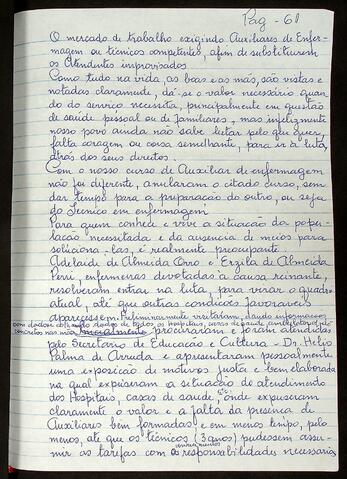 Pag - 61
O mercado de trabalho exigindo Auxiliares de Enfer-
magem ou técnicos competentes, afim de substituirem
os Atendentes improvisados.
Como tudo na vida, as boas e as más, são vistas e
notadas claramente, dá-se o valor necessário quan-
do do serviço necessita, principalmente em questão
de saúde pessoal ou de familiares, mas infelizmente
nosso povo ainda não sabe lutar pelo que quer,
falta coragem ou coisa semelhante, para ir a luta,
atrás dos seus direitos.
Com o nosso curso de Auxiliar de enfermagem
não foi diferente, anularam o citado curso, sem
dar tempo para a preparação do outro, ou seja
do Tecnico em enfermagem
Para quem conhece e vive a situação da popu-
lação necessitada e da ausencia de meios para
soluciona-las, é realmente preocupante.
Adelaide de Almeida Orro e Ercila de Almeida
Perri, enfermeiras devotadas a causa reinante,
resolveram entrar na luta, para virar o quadro
atual, até que outras condições favoraveis
aparecessem. Preliminarmente visitaram, dando informações
com dados obtendo dados de todos os Hospitais, casas de saúde
concretos nas mãos procuraram e foram atendidas
pelo Secretario de Educação e Cultura - Dr. Helio
Palma de Arruda e apresentaram pessoalmente
uma exposição de motivos justa e bem elaborada
na qual expuseram a situação de atendimento
dos Hospitais, casas de saúde, etc, onde expuseram
claramente o valor e a falta da presença de
Auxiliares bem formadas e em menos tempo, pelo
menos, até que os técnicos (3 anos) pudessem assu-
mir as tarefas com as responsabilidades necessarias